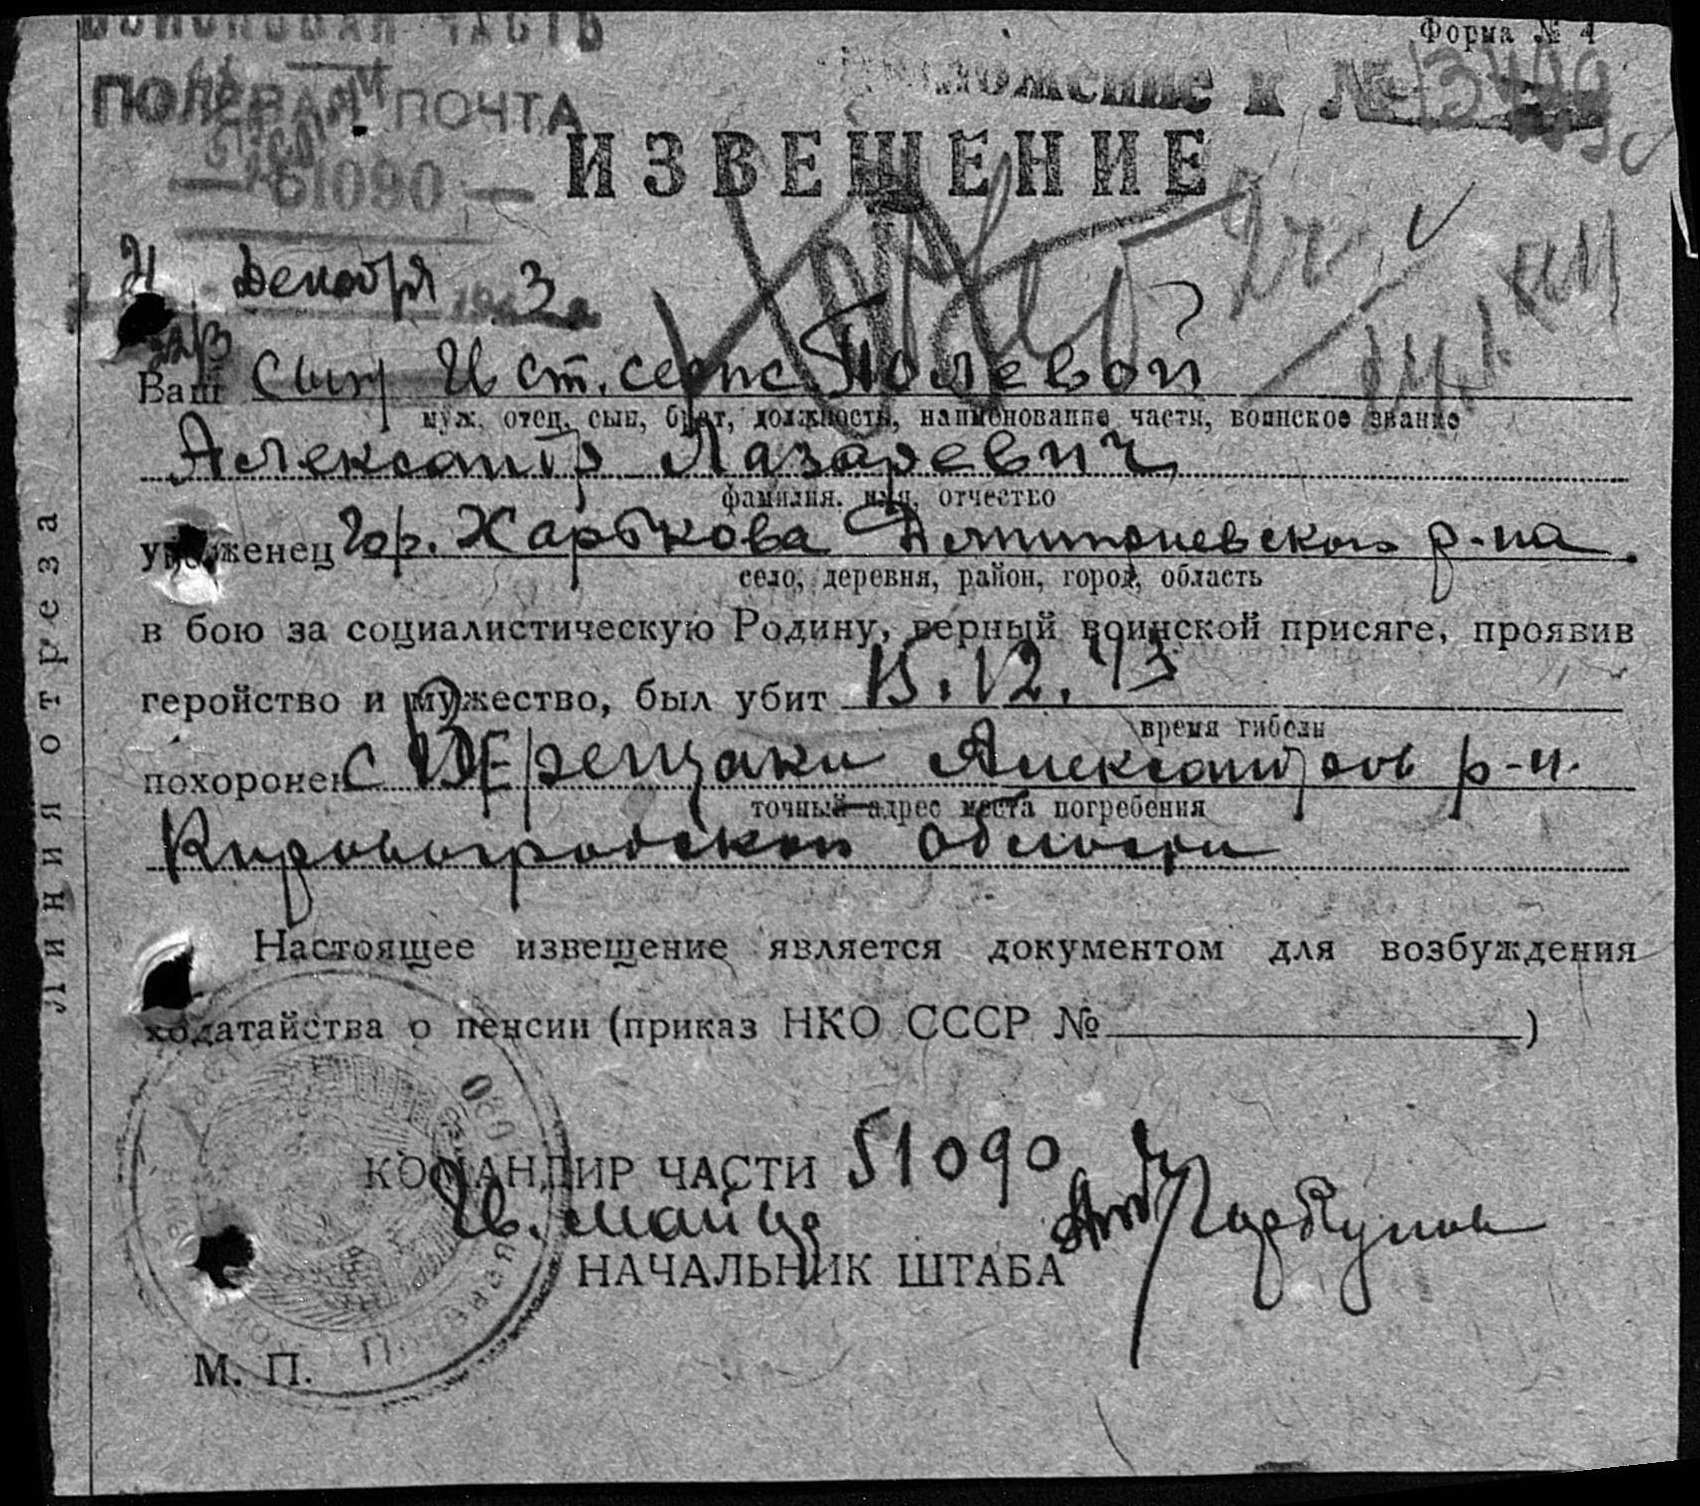 ВОИНСКАЯ ЧАСТЬ
Форма № 4
ПОЛЕВАЯ ПОЧТА
Приложение к №
— 51090 —
ИЗВЕЩЕНИЕ
21 Декабря 1943 г.
Ваш сын Гв ст. серж Полевой
муж, отец, сын, брат, должность, наименование части, воинское звание
Александр Лазаревич
фамилия, имя, отчество
уроженец Гор. Харькова р-на
село, деревня, район, город, область
в бою за социалистическую Родину, верный воинской присяге, проявив
геройство и мужество, был убит 15.12.43
время гибели
похоронен с Верещаки Александров р-н.
точный адрес места погребения
Кировоградской области
Настоящее извещение является документом для возбуждения
ходатайства о пенсии (приказ НКО СССР № )
КОМАНДИР ЧАСТИ 51090
Гв. майор
НАЧАЛЬНИК ШТАБА
М. П.
Линия отреза